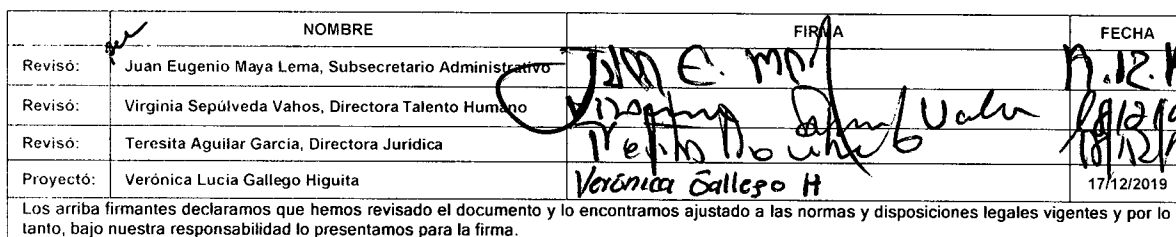 NOMBRE FIRMA FECHA
Revisó: Juan Eugenio Maya Lema, Subsecretario Administrativo Juan E. M
Revisó: Virginia Sepúlveda Vahos, Directora Talento Humano
Revisó: Teresita Aguilar García, Directora Jurídica
Proyectó: Verónica Lucia Gallego Higuita Verónica Gallego H 17/12/2019
Los arriba firmantes declaramos que hemos revisado el documento y lo encontramos ajustado a las normas y disposiciones legales vigentes y por lo
tanto, bajo nuestra responsabilidad lo presentamos para la firma.